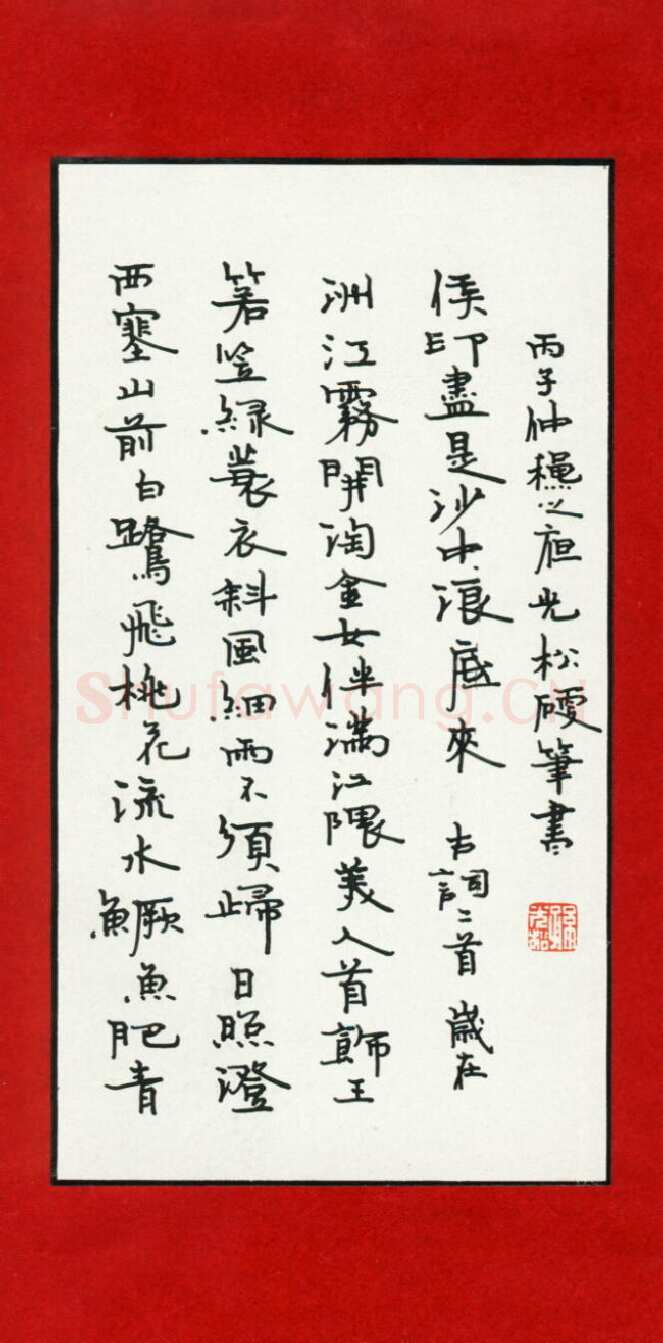 西塞山前白鷺飛桃花流水鱖魚肥青
箬笠緑蓑衣斜風細雨不須歸 日照澄
洲江霧開淘金女伴滿江隈美人首飾王
侯印盡是沙中浪底來 古詞二首 歲在
丙子仲龝之光松硬筆書
Shufawang.CN